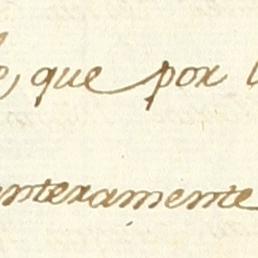 , que por
enteramente